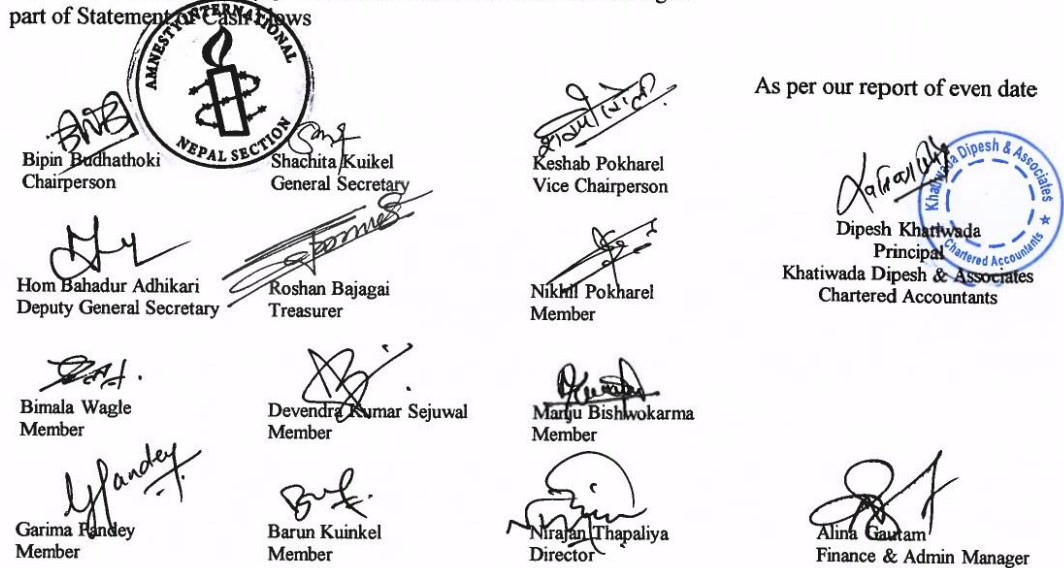 part of Statement of Cash Flows
AMNESTY INTERNATIONAL
NEPAL SECTION
As per our report of even date
Bipin Budhathoki
Chairperson
Shachita Kuikel
General Secretary
Keshab Pokharel
Vice Chairperson
Khatiwada Dipesh & Associates
Chartered Accountants
Dipesh Khatiwada
Principal
Khatiwada Dipesh & Associates
Chartered Accountants
Hom Bahadur Adhikari
Deputy General Secretary
Roshan Bajagai
Treasurer
Nikhil Pokharel
Member
Bimala Wagle
Member
Devendra Kumar Sejuwal
Member
Manju Bishwokarma
Member
Garima Pandey
Member
Barun Kuinkel
Member
Nirajan Thapaliya
Director
Alina Gautam
Finance & Admin Manager